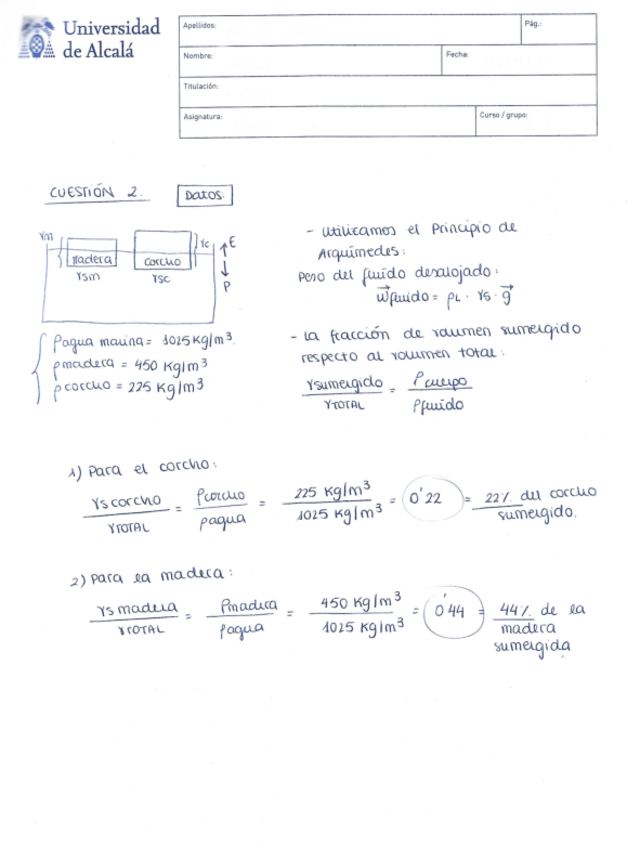 Universidad
de Alcalá
Apellidos:
Pág.:
Nombre:
Fecha:
Titulación:
Asignatura:
Curso / grupo:
CUESTIÓN 2. Datos:
Vm
Madera
Corcho
Vc
E
P
Vsm
Vsc
ρagua marina = 1025 Kg/m³
ρmadera = 450 Kg/m³
ρcorcho = 225 Kg/m³
- Utilizamos el Principio de
Arquímedes:
Peso del fluido desalojado:
Wfluido = ρL · Vs · g
- La fracción de volumen sumergido
respecto al volumen total:
Vsumergido / VTOTAL = ρcuerpo / ρfluido
1) Para el corcho:
Vs corcho / VTOTAL = ρcorcho / ρagua = 225 Kg/m³ / 1025 Kg/m³ = 0'22 = 22% del corcho
sumergido.
2) Para la madera:
Vs madera / VTOTAL = ρmadera / ρagua = 450 Kg/m³ / 1025 Kg/m³ = 0'44 = 44% de la
madera
sumergida